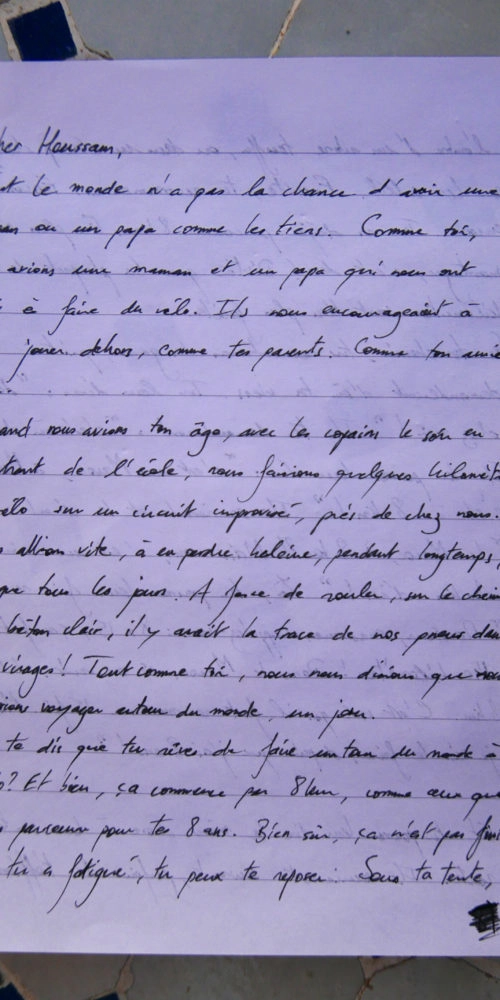 her Houssam,
t le monde n'a pas la chance d'avoir une
an ou un papa comme les tiens. Comme toi,
avions une maman et un papa qui nous ont
s à faire du vélo. Ils nous encourageaient à
jouer dehors, comme tes parents. Comme ton amie
and nous avions ton âge, avec les copains le soir en
trant de l'école, nous faisions quelques kilomèt
élo sur un circuit improvisé, près de chez nous.
s allions vite, à en perdre haleine, pendant longtemps,
que tous les jours. A force de rouler, sur le chem
béton clair, il y avait la trace de nos pneus dan
virages! Tout comme toi, nous nous disions que nous
voyager autour du monde, un jour.
te dis que tu rêves de faire un tour du monde à
o? Et bien, ça commence par 8 km, comme ceux que
s parcouru pour tes 8 ans. Bien sûr, ça n'est pas fini
tu a fatigué, tu peux te reposer. Sous ta tente,